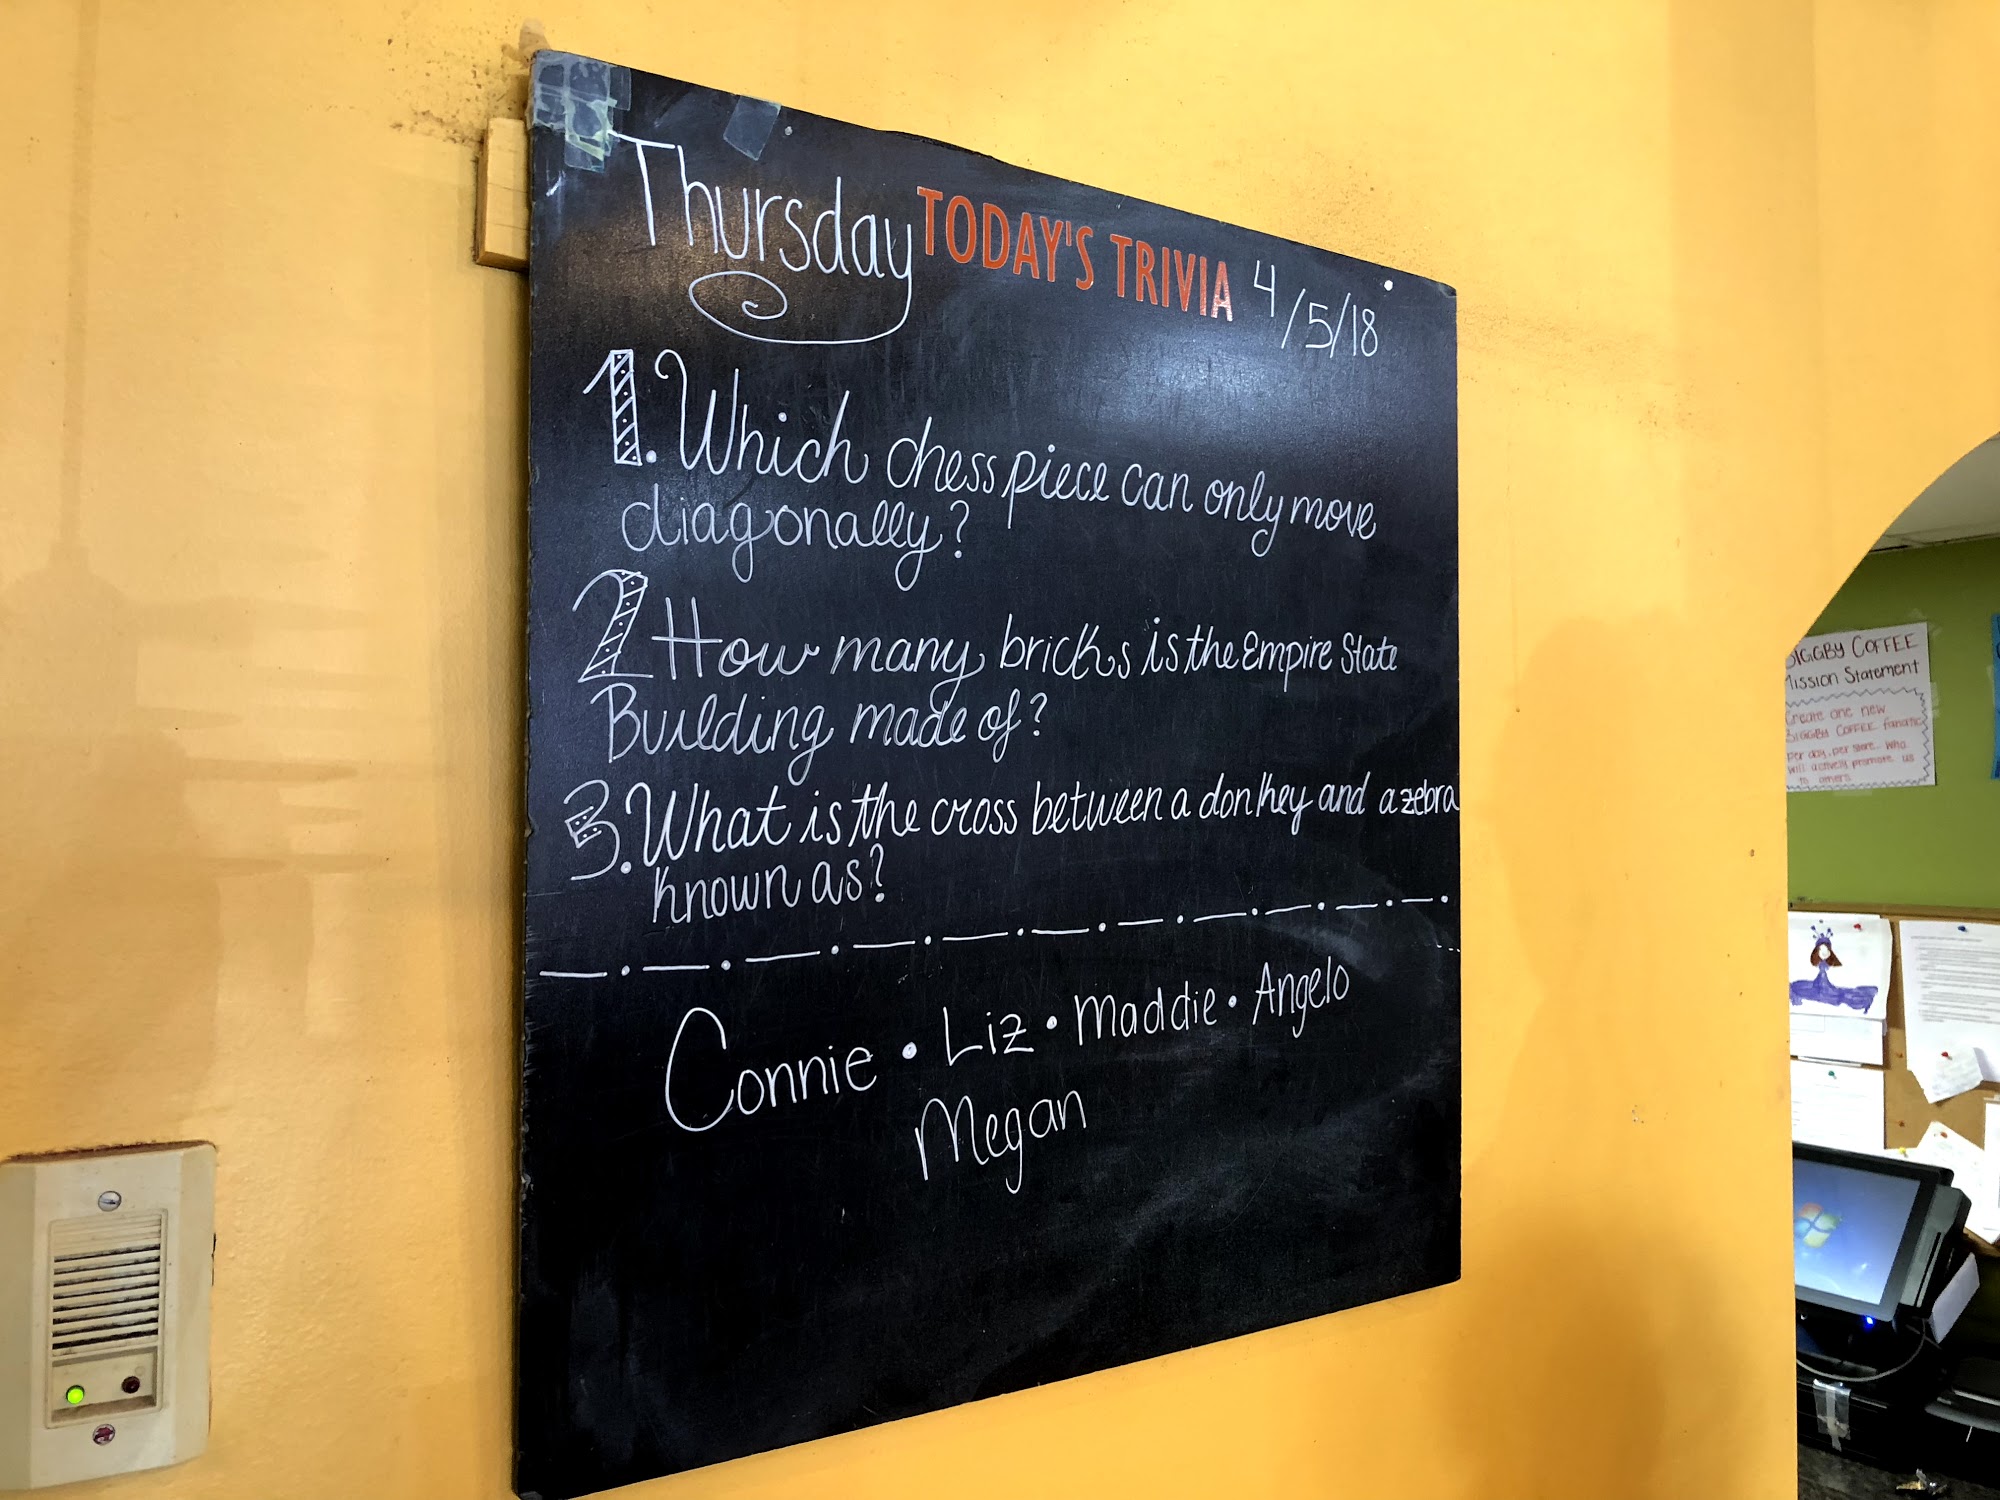 Thursday TODAY'S TRIVIA 4/5/18
1. Which chess piece can only move
diagonally?
2 How many bricks is the Empire State
Building made of?
3. What is the cross between a donkey and a zebra
known as?
Connie • Liz • Maddie • Angelo
Megan
BIGGBY COFFEE
Mission Statement
Create one new
BIGGBY COFFEE fanatic
per day, per store... who
will actively promote us
to others